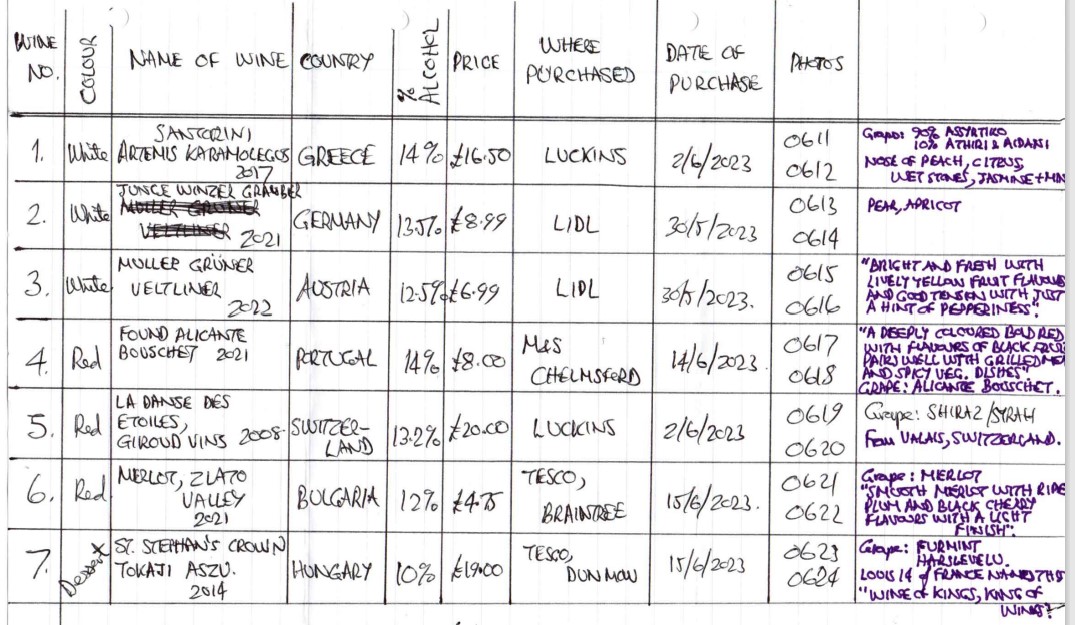 WINE NO. COLOUR NAME OF WINE COUNTRY % ALCOHOL PRICE WHERE PURCHASED DATE OF PURCHASE PHOTOS
1. White SANTORINI ARTEMIS KARAMOLEGOS 2017 GREECE 14% £16.50 LUCKINS 2/6/2023 0611 0612 Grapes: 90% ASSYRTIKO 10% ATHIRI & AIDANI NOSE OF PEACH, CITRUS, WET STONES, JASMINE + MIN
2. White JUNGE WINZER GRAUBER 2021 GERMANY 13.5% £8.99 LIDL 30/5/2023 0613 0614 PEAR, APRICOT
3. White MULLER GRÜNER VELTLINER 2022 AUSTRIA 12.5% £6.99 LIDL 30/5/2023. 0615 0616 "BRIGHT AND FRESH WITH LIVELY YELLOW FRUIT FLAVOURS AND GOOD TENSION WITH JUST A HINT OF PEPPERINESS".
4. Red FOUND ALICANTE BOUSCHET 2021 PORTUGAL 14% £8.00 M&S CHELMSFORD 14/6/2023. 0617 0618 "A DEEPLY COLOURED BOLD RED WITH FLAVOURS OF BLACK PAIRS WELL WITH GRILLED ME AND SPICY VEG. DISHES" GRAPE: ALICANTE BOUSCHET.
5. Red LA DANSE DES ETOILES, GIROUD VINS 2008. SWITZER-LAND 13.2% £20.00 LUCKINS 2/6/2023 0619 0620 Grape: SHIRAZ/SYRAH From VALAIS, SWITZERLAND.
6. Red MERLOT, ZLATO VALLEY 2021 BULGARIA 12% £4.75 TESCO, BRAINTREE 15/6/2023. 0621 0622 Grape: MERLOT "SMOOTH MERLOT WITH RIPE PLUM AND BLACK CHERRY FLAVOURS WITH A LIGHT FINISH".
7. Dessert ST. STEPHAN'S CROWN TOKAJI ASZU. 2014 HUNGARY 10% £19.00 TESCO, DUNMOW 15/6/2023 0623 0624 Grape: FURMINT HARSLEVELU. LOUIS 14 of FRANCE NAMED THIS "WINE of KINGS, KING OF WINES"